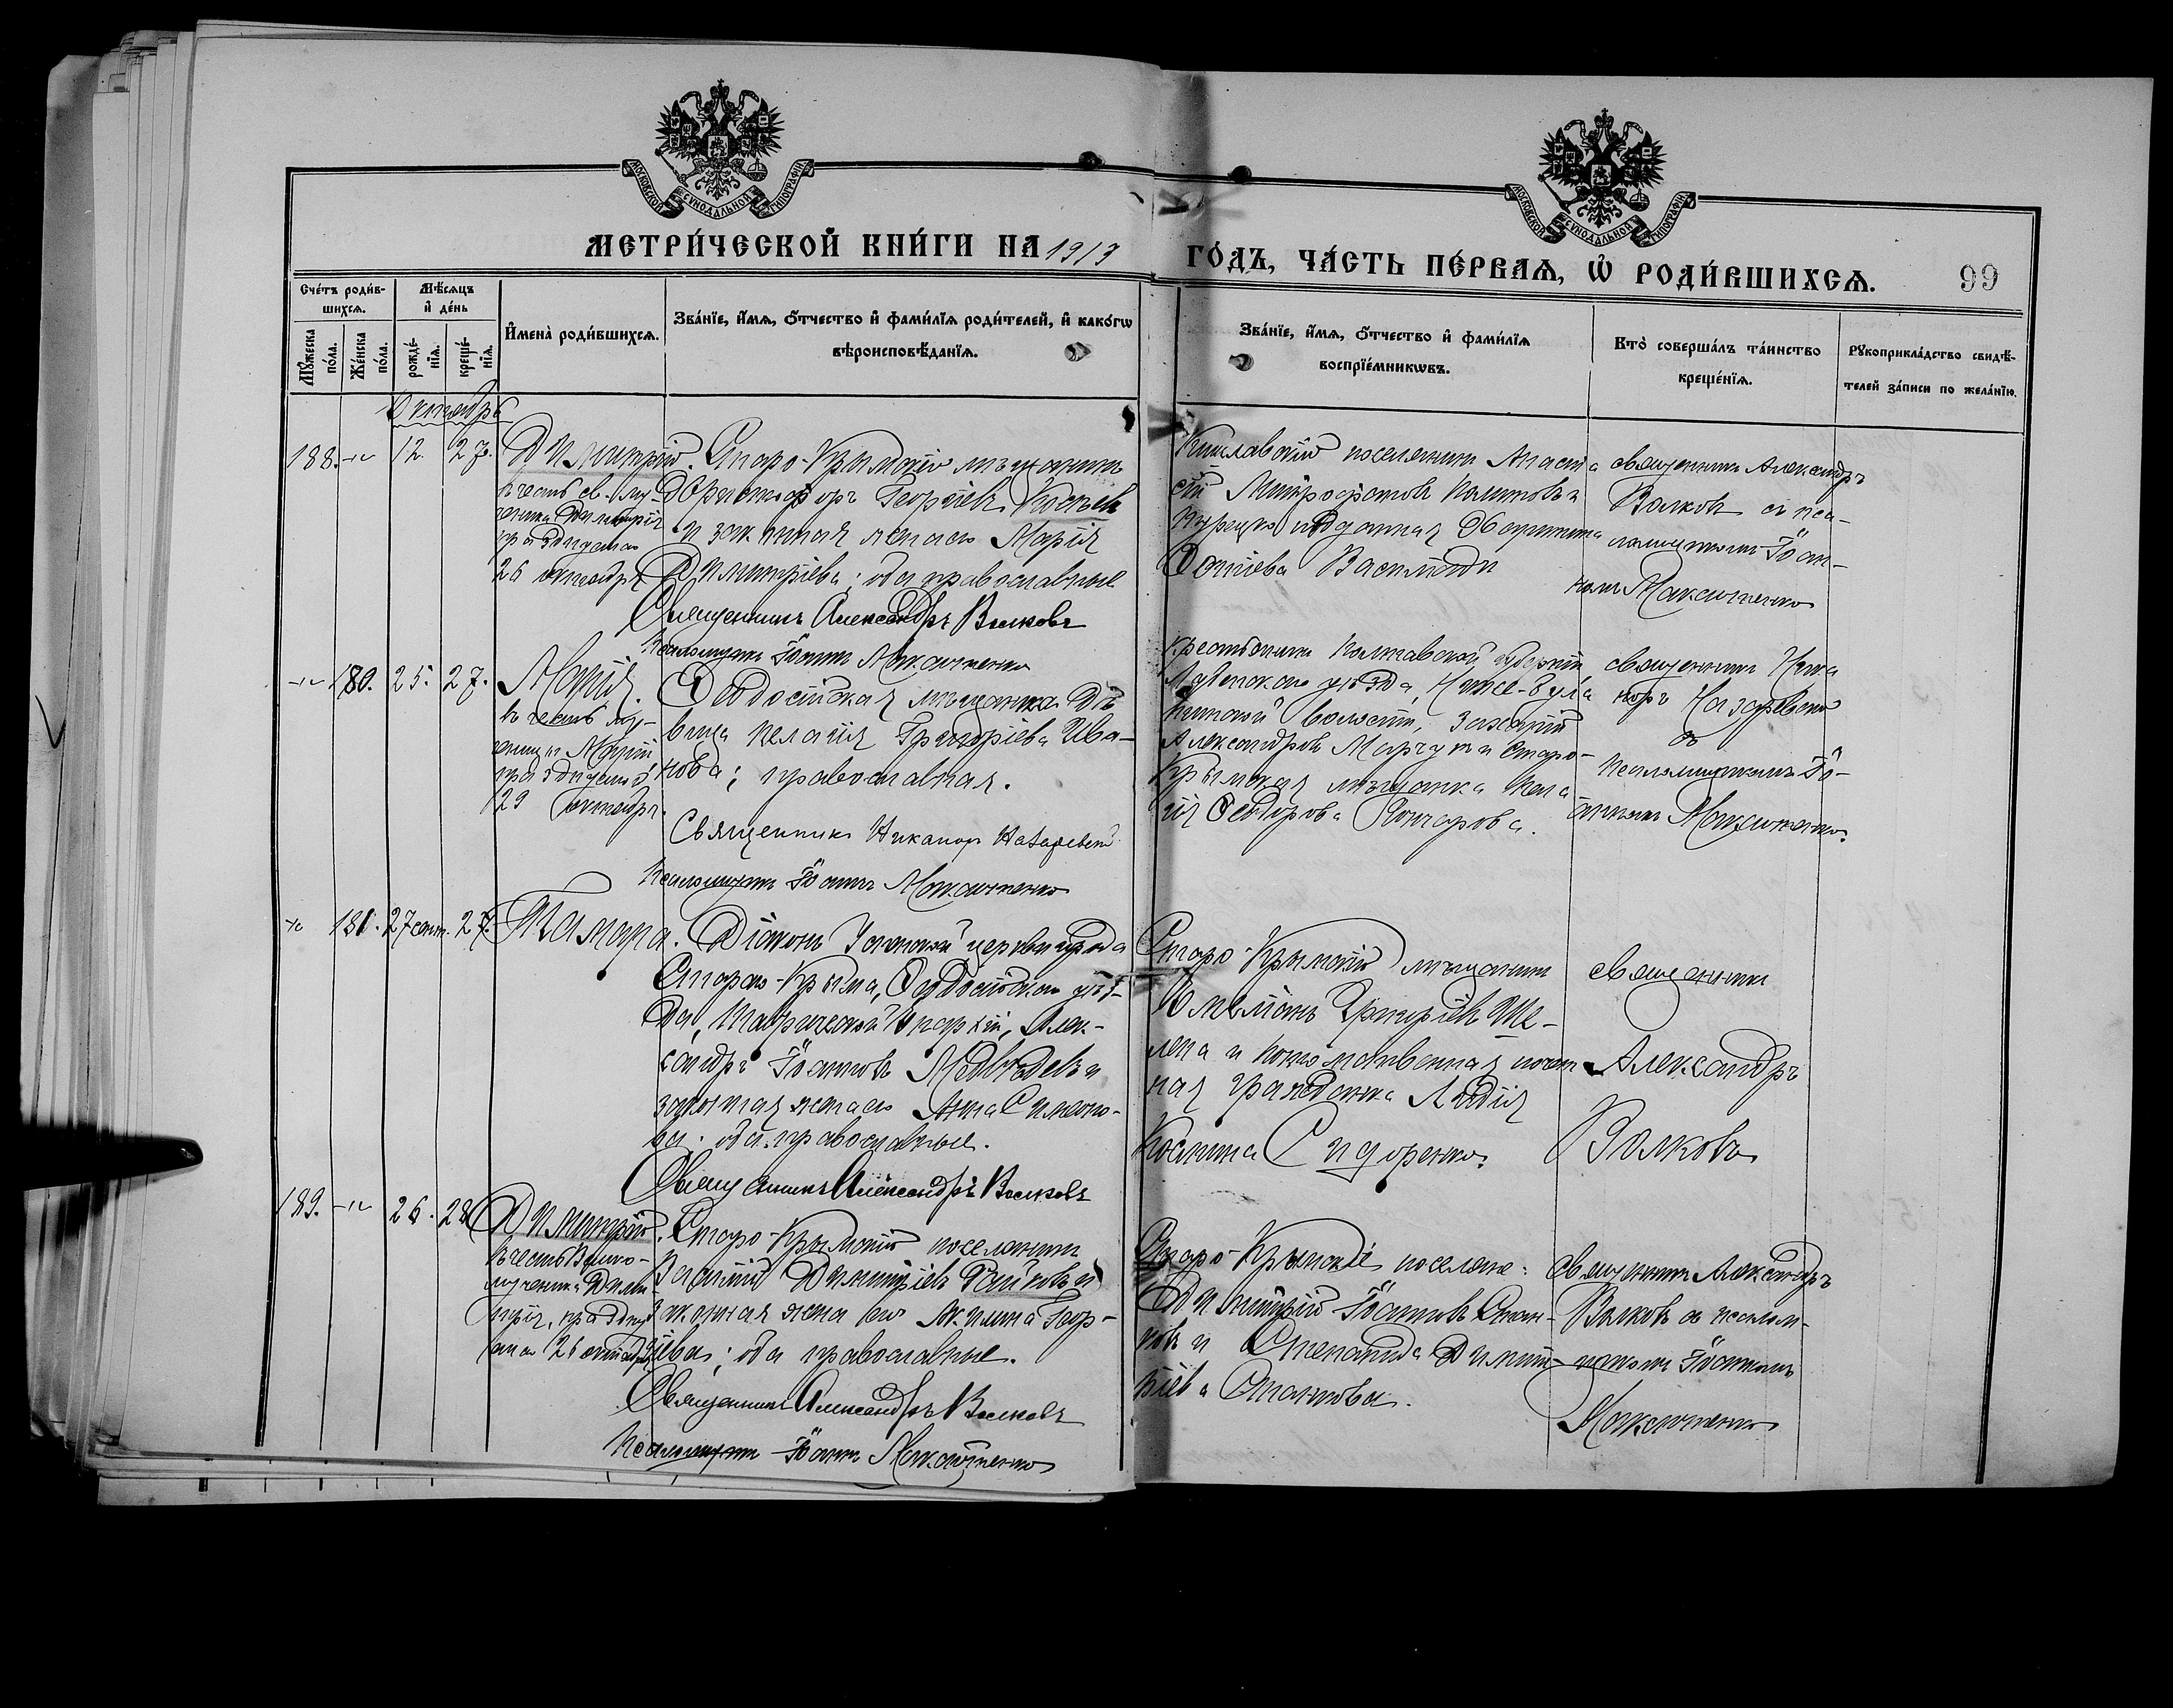 МОСКОВСКОЙ СѴНОДАЛЬНОЙ ТИПОГРАФІИ
МОСКОВСКОЙ СѴНОДАЛЬНОЙ ТИПОГРАФІИ
МЕТРИ́ЧЕСКОЙ КНИ́ГИ НА 1913
ГО́ДЪ, ЧА́СТЬ ПЕ́РВАѦ, Ѽ РОДИ́ВШИХСѦ.
99
Сче́тъ роди́в-
шихсѧ.
Мꙋ́жеска
по́ла.
Же́нска
по́ла.
Мѣ́сѧцъ
и҆ де́нь
рожде́-
нїѧ.
креще́-
нїѧ.
И҆мена̀ роди́вшихсѧ.
Зва́нїе, и҆́мѧ, ѻ҆́тчество и҆ фами́лїѧ роди́телей, и҆ како́гѡ
вѣроисповѣ́данїѧ.
Зва́нїе, и҆́мѧ, ѻ҆́тчество и҆ фами́лїѧ
воспрїе́мникѡвъ.
Кто̀ соверша́лъ та́инство
креще́нїѧ.
Рꙋкоприкла́дство свидѣ́-
телей за́писи по жела́нїю.
Октябрь
188. -"- 12. 27.
Димитрій.
въ честь св. му-
ченика Димитрія
празднуемаго
26 октября
Старо-Крымскій мѣщанинъ
Христофоръ Георгіевъ Костевъ
и законная жена его Марія
Димитріева; оба православные
Священникъ Александръ Волковъ
Псаломщикъ Іоаннъ Максютенко
Кишлавскій поселянинъ Анаста
сій Митрофановъ Калиновъ и
турецко подданная
Фотіева Василиди
священникъ Александръ
Волковъ съ пса-
ломщикомъ Іоан-
номъ Максютенко
-"- 180. 25. 27.
Марія.
въ честь му-
ченицы Маріи
празднуемой
29 октября.
Ѳеодосійская мѣщанка дѣ
вица Пелагія Григоріева Ива-
нова; православная.
Священникъ Никаноръ Назаревскій
Псаломщикъ Іоаннъ Максютенко
крестьянинъ Полтавской губерніи
Лубенскаго уѣзда, Ниже-Була
тинской волости, Захарій
Александровъ Марчукъ и Старо-
Крымская мѣщанка Пела
гія Ѳеодорова Гончарова.
священникъ Ника
норъ Назаревскій
съ
псаломщикомъ Іо-
анномъ Максютенко.
-"- 181. 27 сент. 27.
Тамара.
Діаконъ Успенской церкви города
Стараго-Крыма, Ѳеодосійскаго уѣз-
да, Таврической Епархіи, Алек-
сандръ Іоанновъ Медвѣдевъ и
законная жена его Анна Симеоно-
ва; оба православные.
Священникъ Александръ Волковъ
Старо-Крымскій мѣщанинъ
Емеліанъ Григоріевъ Ше-
лепа и потомственная почет
ная гражданка Лидія
Косьмина Сидоренко.
священникъ
Александръ
Волковъ
189. -"- 26. 28.
Димитрій.
въ честь Велико-
мученика Дими-
трія, праздну
емаго 26 октября
Старо-Крымскій поселянинъ
Василій Димитріевъ Райковъ и
законная жена его Акилина Геор-
гіева; оба православные.
Священникъ Александръ Волковъ
Псаломщикъ Іоаннъ Максютенко
Старо-Крымскіе поселяне:
Димитрій Іоанновъ Стан-
ковъ и Степанида Димит-
ріева Станкова.
священникъ Александръ
Волковъ съ псалом-
щикомъ Іоанномъ
Максютенко